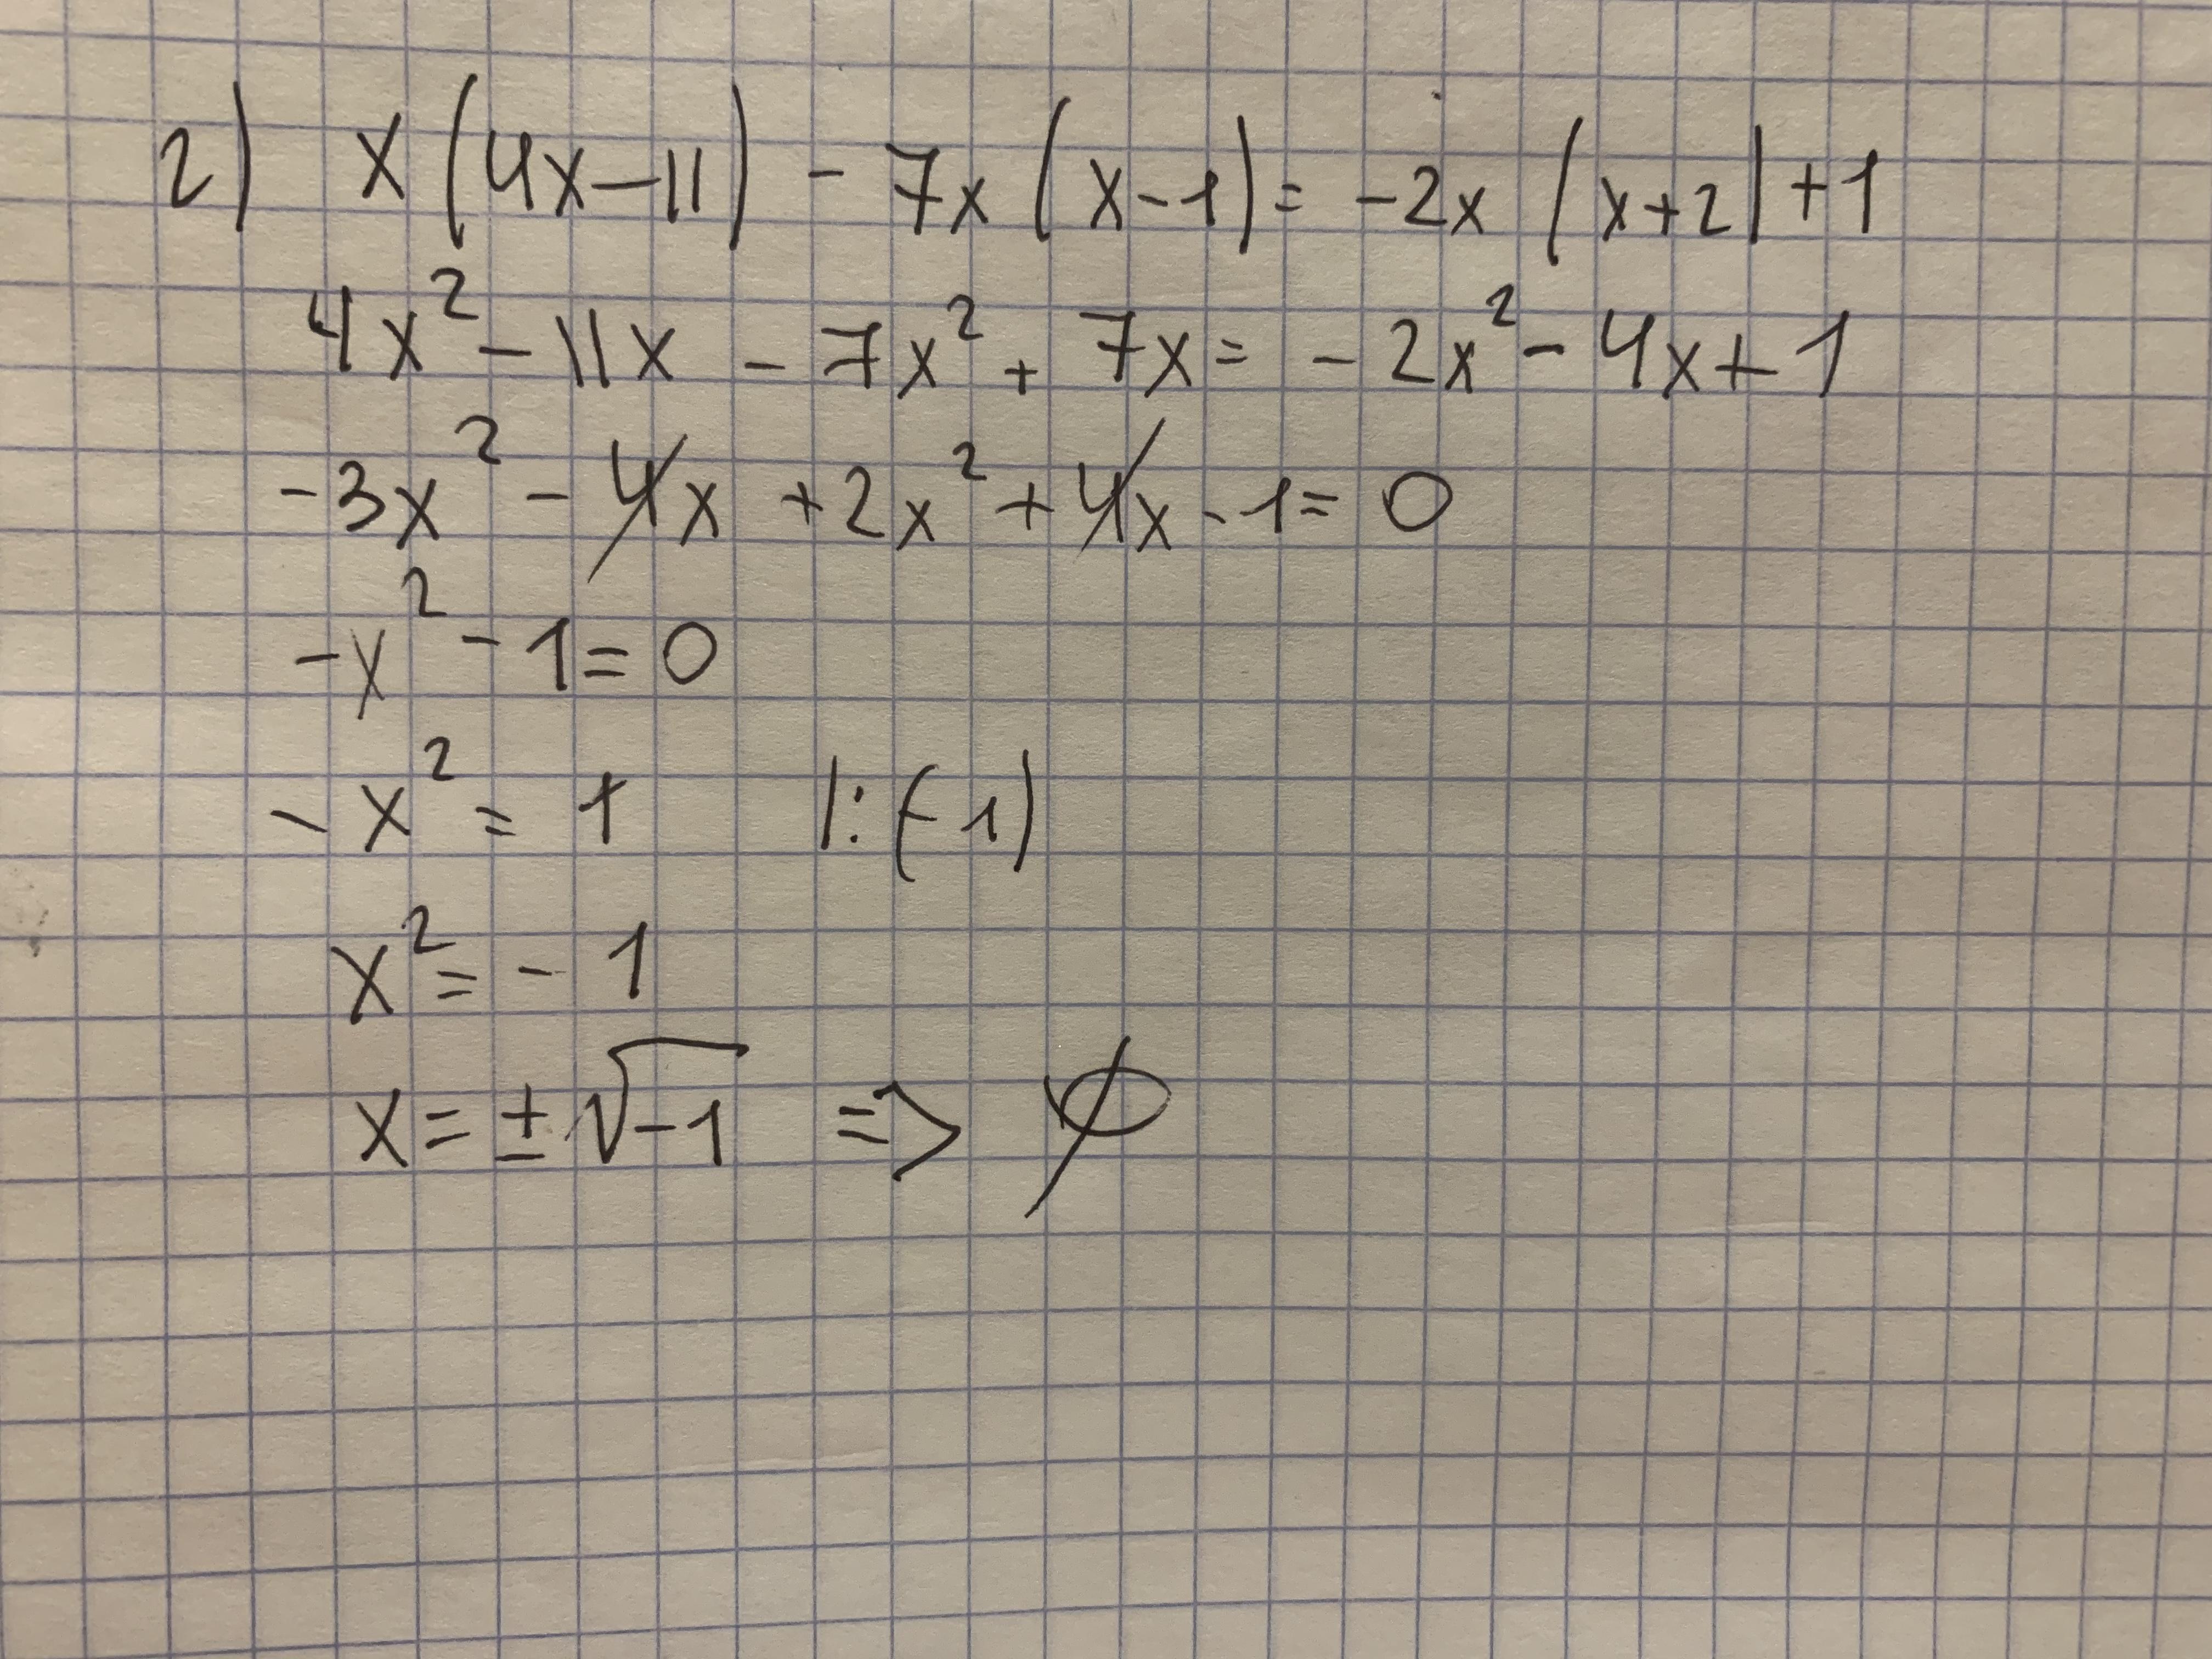 2) x(4x-11) - 7x(x-1) = -2x(x+2)+1
4x² - 11x - 7x² + 7x = -2x² - 4x + 1
-3x² - 4x + 2x² + 4x - 1 = 0
-x² - 1 = 0
-x² = 1 |:(-1)
x² = -1
x = ±√-1 => ∅